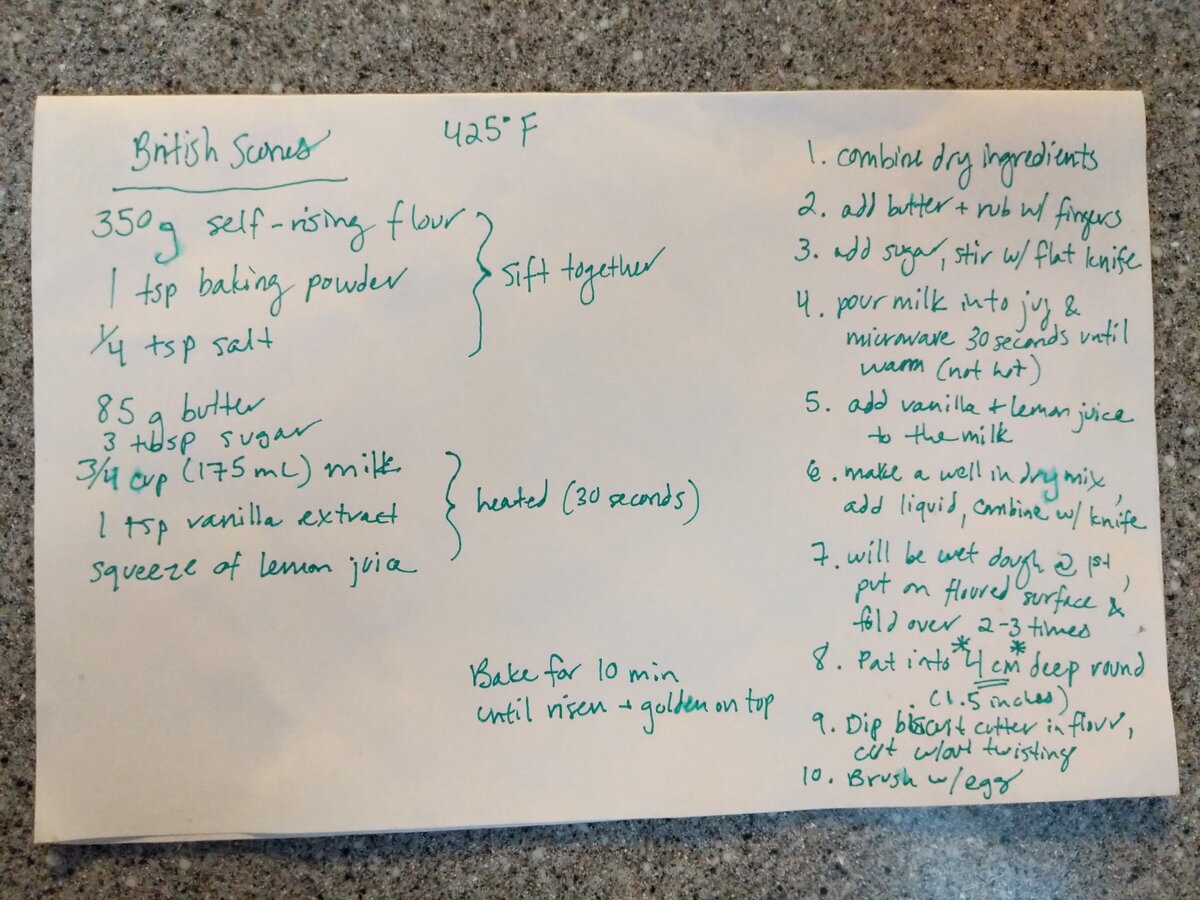 British Scones
425° F
350g self-rising flour
1 tsp baking powder
1/4 tsp salt
sift together
85 g butter
3 tbsp sugar
3/4 cup (175 mL) milk
1 tsp vanilla extract
squeeze of lemon juice
heated (30 seconds)
Bake for 10 min
until risen + golden on top
1. combine dry ingredients
2. add butter + rub w/ fingers
3. add sugar, stir w/ flat knife
4. pour milk into jug &
microwave 30 seconds until
warm (not hot)
5. add vanilla + lemon juice
to the milk
6. make a well in dry mix,
add liquid, combine w/ knife
7. will be wet dough @ 1st,
put on floured surface &
fold over 2-3 times
8. Pat into *4 cm* deep round
(1.5 inches)
9. Dip biscuit cutter in flour,
cut w/out twisting
10. Brush w/ egg